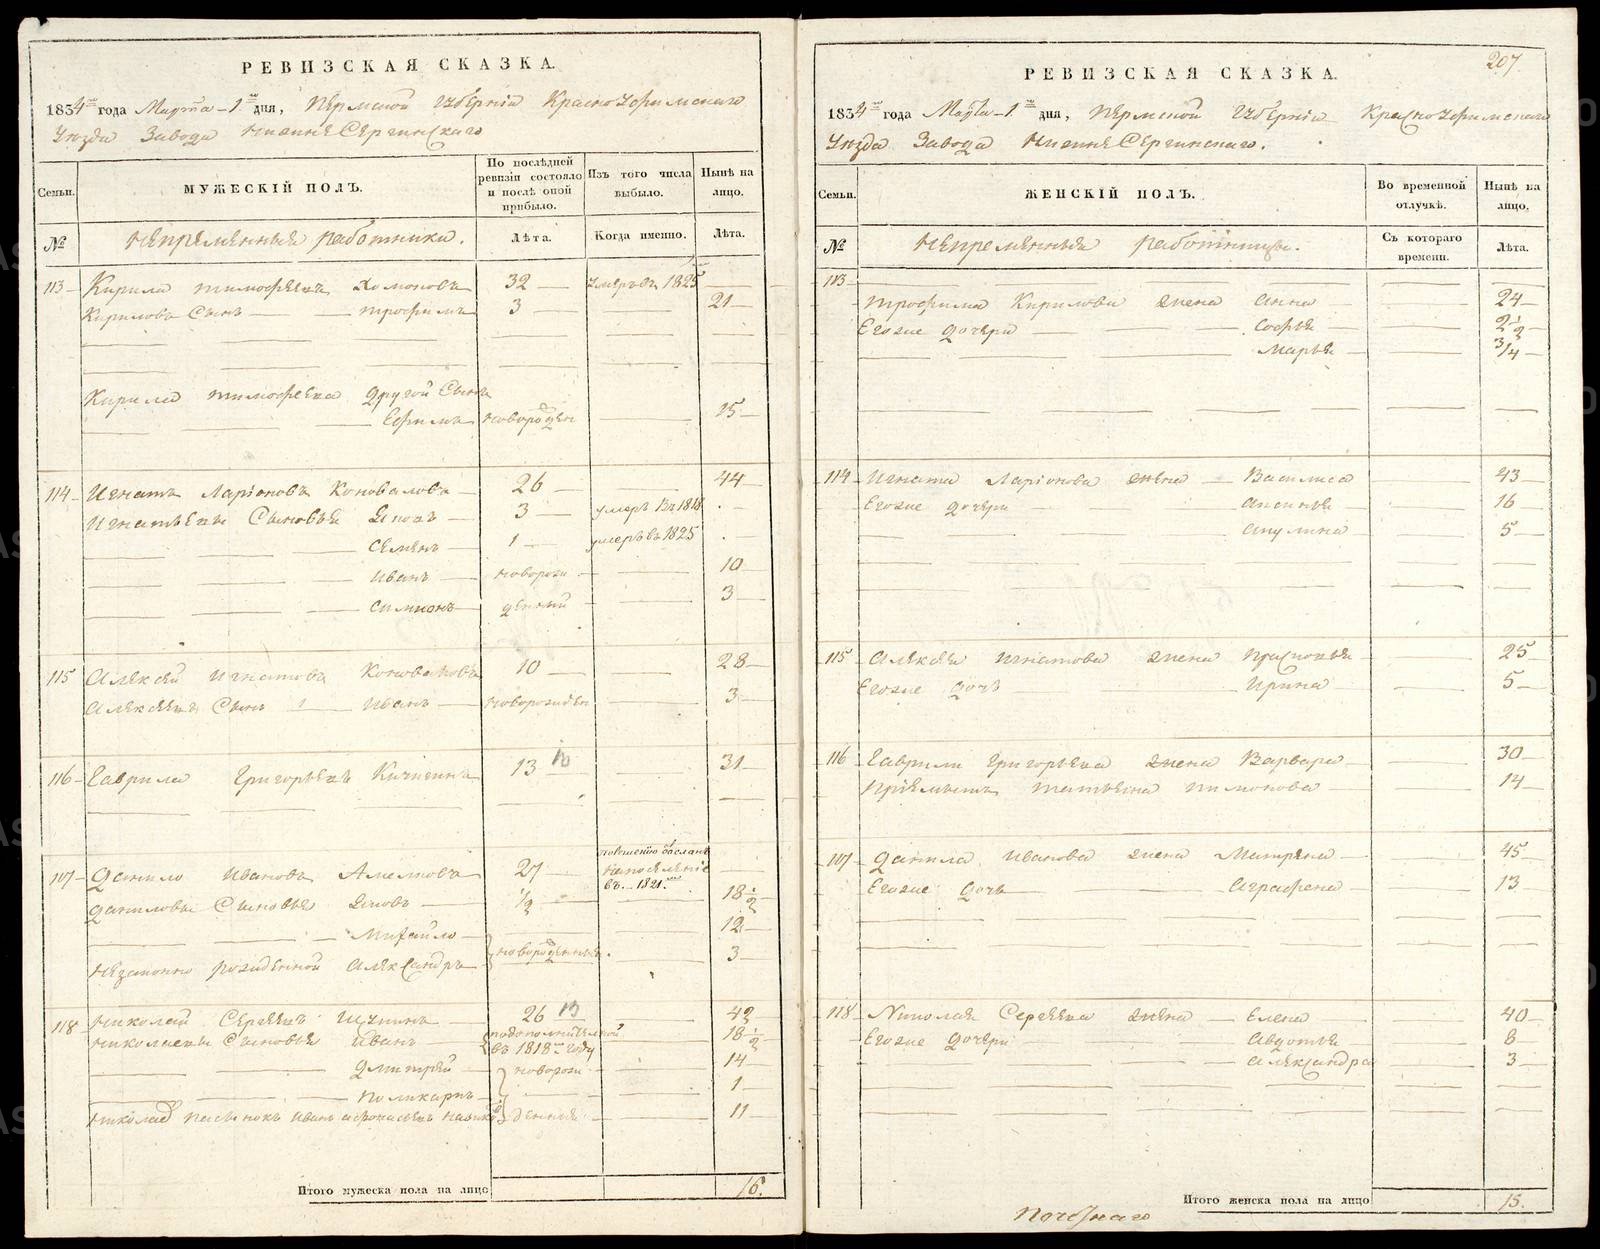 РЕВИЗСКАЯ СКАЗКА.
1834 года Марта 1 дня, Пермской Губернiи Красноуфимскаго
Уезда Завода НижнеСергинскаго
Семьи. МУЖЕСКIЙ ПОЛЪ. По послѣдней ревизiи состояло и послѣ оной прибыло. Изъ того числа выбыло. Нынѣ на лицо.
№ Непременныя работники. Лѣта. Когда именно. Лѣта.
113 Кирила Тимофеевъ Хомоновъ 32 умеръ въ 1825
Кириловъ Сынъ Трофимъ 3 21
Кирила Тимофеева другой Сынъ
Ефимъ новорожден 15
114 Игнатъ Ларiоновъ Коноваловъ 26 44
Игнатьевы Сыновья Яковъ 3 умеръ въ 1818
Семенъ 1 умеръ въ 1825
Иванъ новорож 10
Симионъ денный 3
115 Алексей Игнатова Коноваловъ 10 28
Алексеевъ Сынъ Иванъ новорожден 3
116 Гаврило Григорьевъ Кичигинъ 13 31
107 Данило Ивановъ 27 на поселенiе въ 1821 18 1/2
Даниловы Сыновья Яковъ 1/2
Михайло 12
Незаконно рожденной Александръ новорожденные 3
118 Николай Сергеевъ 26 42
Николаевы Сыновья Иванъ въ 1818 году 18 1/2
Дмитрей новорож 14
Поликарпъ 1
Николая пасынокъ Иванъ денные 11
Итого мужеска пола на лицо 16.
207.
РЕВИЗСКАЯ СКАЗКА.
1834 года Марта 1 дня, Пермской Губернiи Красноуфимскаго
Уезда Завода НижнеСергинскаго.
Семьи. ЖЕНСКIЙ ПОЛЪ. Во временной отлучкѣ. Нынѣ на лицо.
№ Непременныя работницы. Съ котораго времени. Лѣта.
113
Трофима Кирилова жена Анна 24
Егоже дочери Софья 2 1/2
Марья 3/4
114 Игната Ларiонова жена Василиса 43
Егоже дочери Аксинья 16
Акулина 5
115 Алексея Игнатова жена Прасковья 25
Егоже дочь Ирина 5
116 Гаврили Григорьева жена Варвара 30
Прiемышъ Татьяна 14
107 Данила Иванова жена Матрена 45
Егоже дочь Аграфена 13
118 Николая Сергеева жена Елена 40
Егоже дочери Авдотья 8
Александра 3
Итого женска пола на лицо 15.